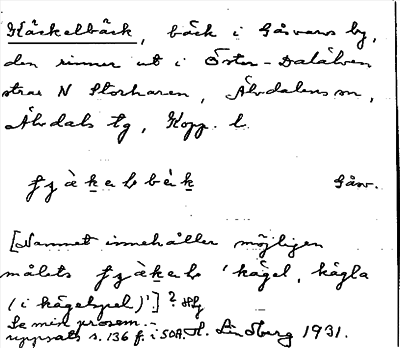 Käckelbäck, bäck i Gåsvarvs by,
den rinner ut i Öster-Dalälven
strax N Storharen, Älvdalens sn,
Älvdals tg, Kopp. l.
Gåsv.
[Namnet innehåller möjligen
målets 'kägel, kägla
(i kägelspel)'] ?
Se min prosem.-
uppsats s. 136 f. i SOA. H. Lindberg 1931.